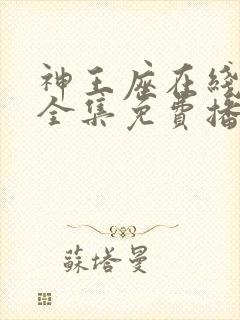 神王座在綫
全集免費播
蘇塔曼